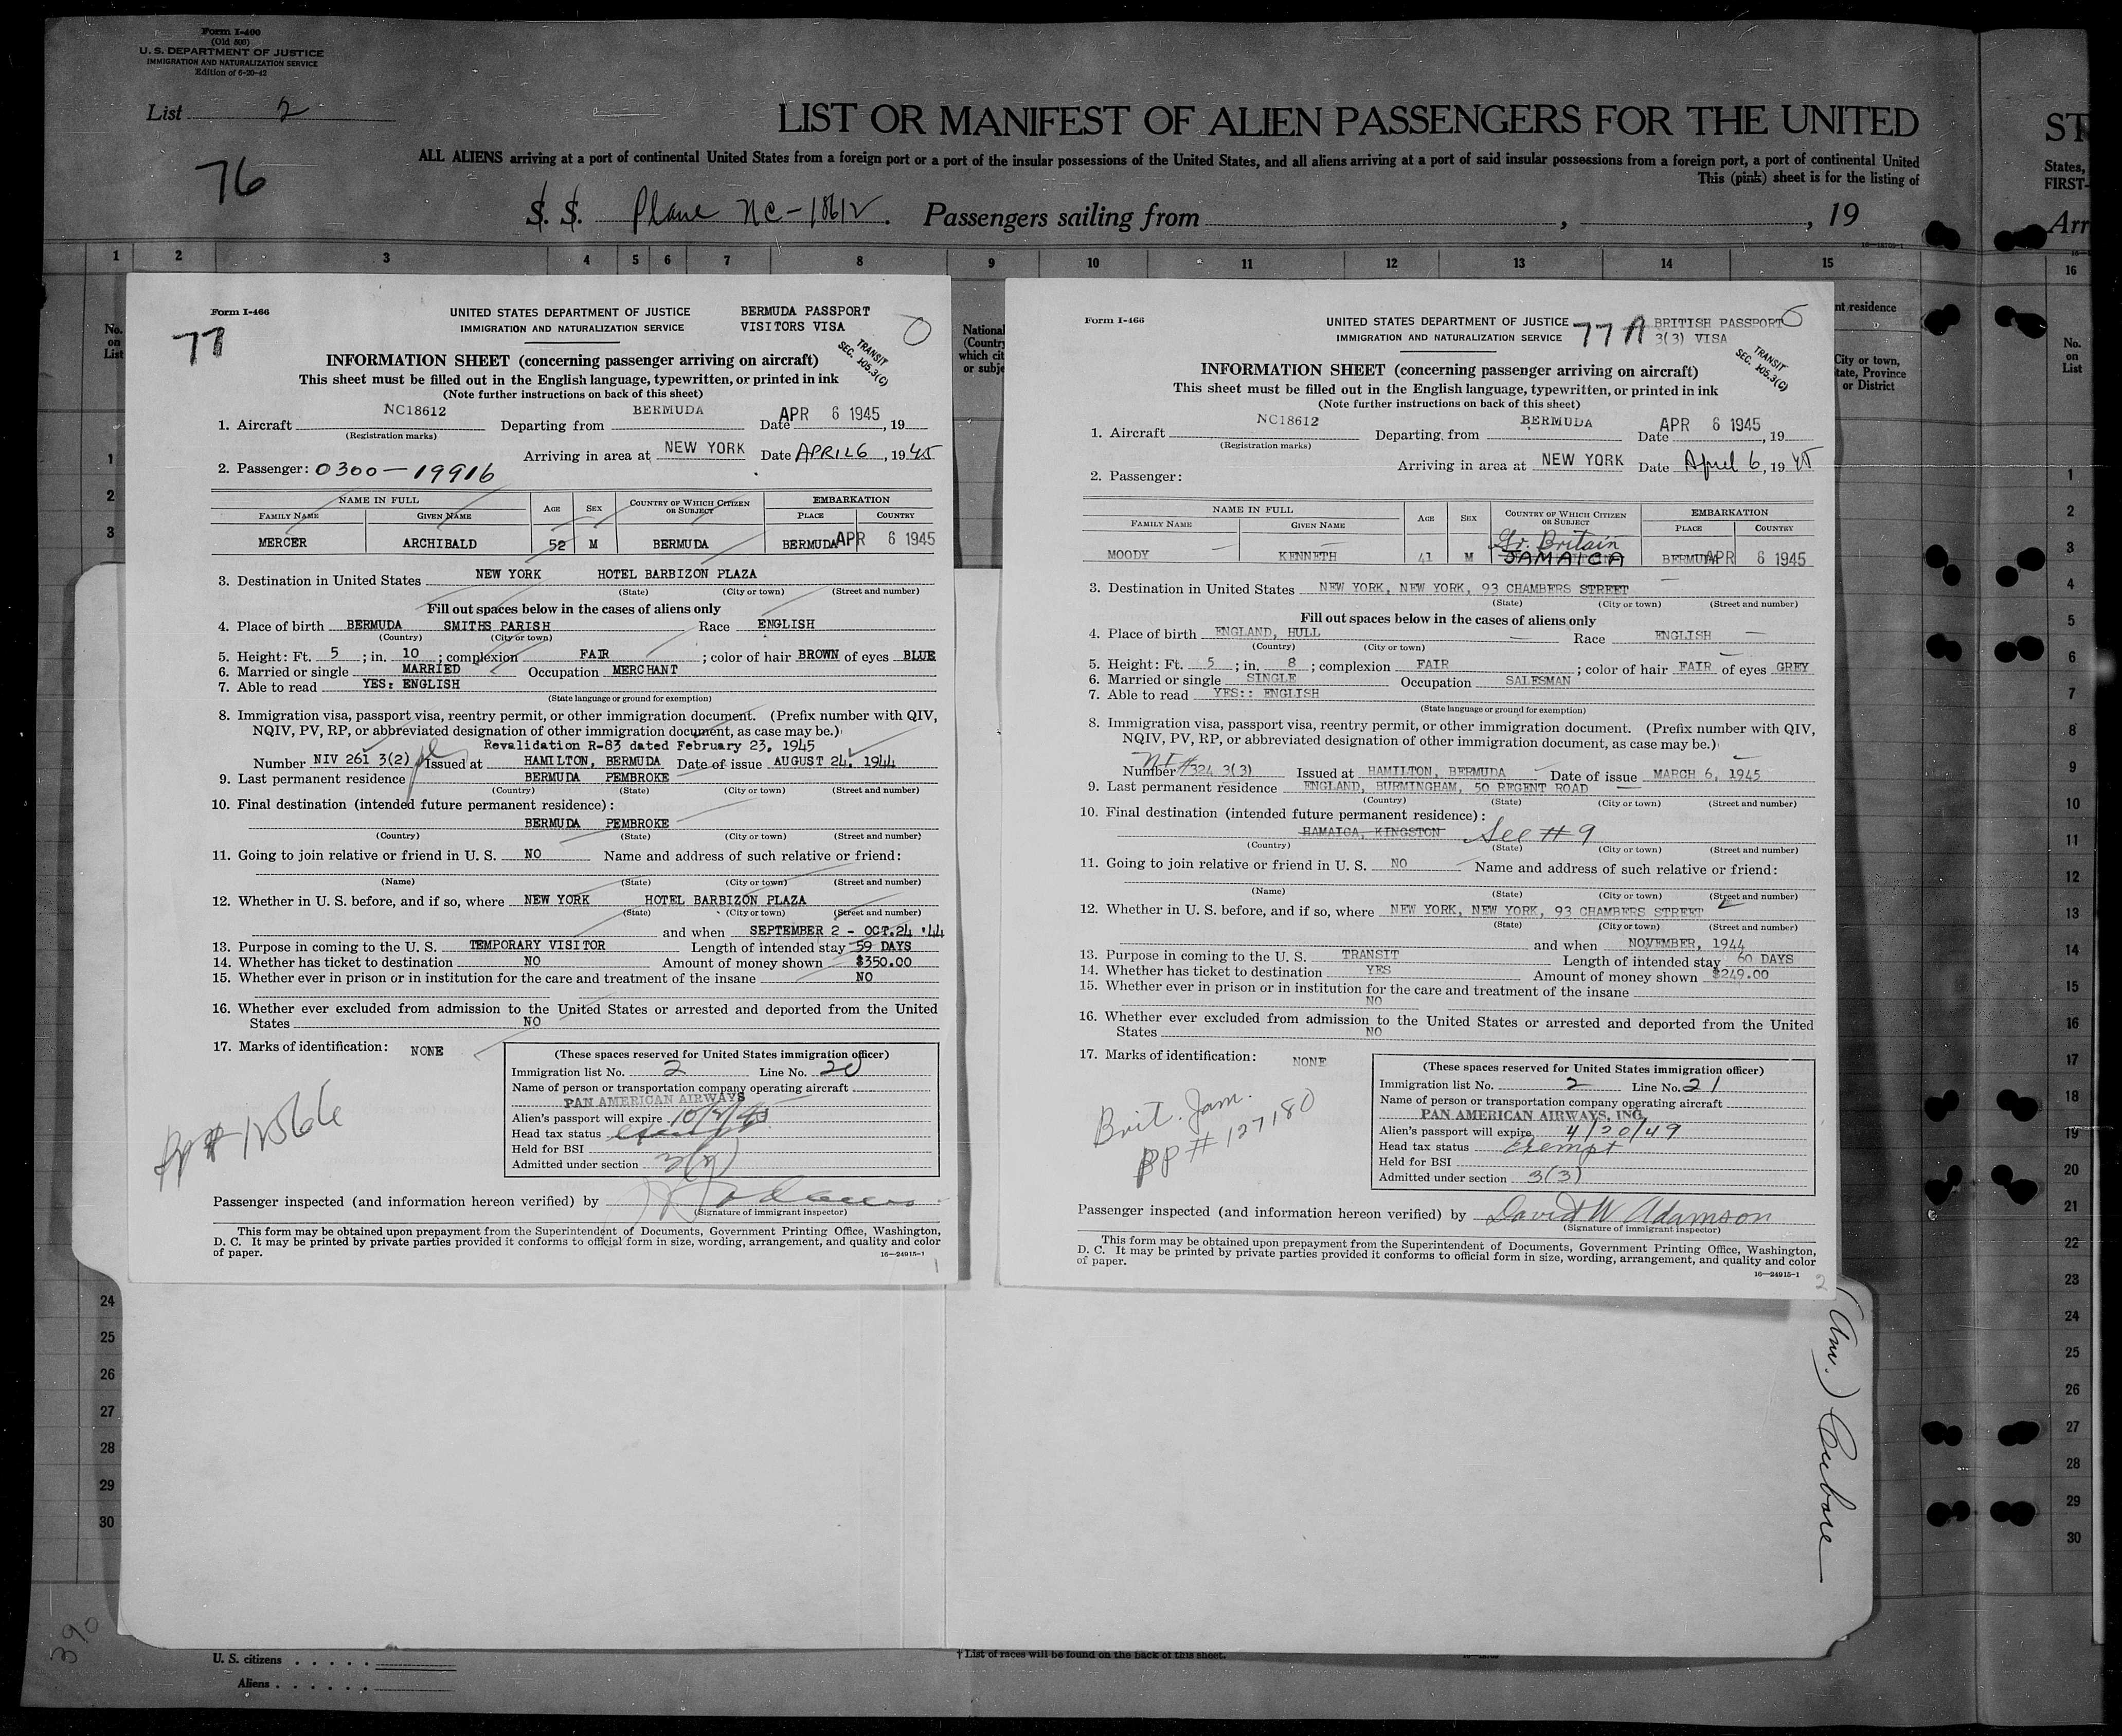 Form I-400
(Old 500)
U. S. DEPARTMENT OF JUSTICE
IMMIGRATION AND NATURALIZATION SERVICE
Edition of 6-20-42
List 2
76
LIST OR MANIFEST OF ALIEN PASSENGERS FOR THE UNITED
ALL ALIENS arriving at a port of continental United States from a foreign port or a port of the insular possessions of the United States, and all aliens arriving at a port of said insular possessions from a foreign port, a port of continental United
This (pink) sheet is for the listing of
S. S. Plane NC-18612. Passengers sailing from , , 19
ST
States,
FIRST-
Arr
1 2 3 4 5 6 7 8 9 10 11 12 13 14 15 16
No.
on
List
1
2
3
Form I-466
77
UNITED STATES DEPARTMENT OF JUSTICE
IMMIGRATION AND NATURALIZATION SERVICE
BERMUDA PASSPORT
VISITORS VISA
TRANSIT
SEC. 105.3(C)
INFORMATION SHEET (concerning passenger arriving on aircraft)
This sheet must be filled out in the English language, typewritten, or printed in ink
(Note further instructions on back of this sheet)
1. Aircraft NC18612 Departing from BERMUDA Date APR 6 1945, 19
(Registration marks)
Arriving in area at NEW YORK Date APRIL 6, 1945
2. Passenger: 0300-19916
NAME IN FULL AGE SEX COUNTRY OF WHICH CITIZEN OR SUBJECT EMBARKATION
FAMILY NAME GIVEN NAME PLACE COUNTRY
MERCER ARCHIBALD 52 M BERMUDA BERMUDA APR 6 1945
3. Destination in United States NEW YORK HOTEL BARBIZON PLAZA
(State) (City or town) (Street and number)
Fill out spaces below in the cases of aliens only
4. Place of birth BERMUDA SMITHS PARISH Race ENGLISH
(Country) (City or town)
5. Height: Ft. 5; in. 10; complexion FAIR; color of hair BROWN of eyes BLUE
6. Married or single MARRIED Occupation MERCHANT
7. Able to read YES: ENGLISH
(State language or ground for exemption)
8. Immigration visa, passport visa, reentry permit, or other immigration document. (Prefix number with QIV,
NQIV, PV, RP, or abbreviated designation of other immigration document, as case may be.)
Revalidation R-83 dated February 23, 1945
Number NIV 261 3(2) Issued at HAMILTON, BERMUDA Date of issue AUGUST 24, 1944
9. Last permanent residence BERMUDA PEMBROKE
(Country) (State) (City or town) (Street and number)
10. Final destination (intended future permanent residence):
BERMUDA PEMBROKE
(Country) (State) (City or town) (Street and number)
11. Going to join relative or friend in U. S. NO Name and address of such relative or friend:
(Name) (State) (City or town) (Street and number)
12. Whether in U. S. before, and if so, where NEW YORK HOTEL BARBIZON PLAZA
(State) (City or town) (Street and number)
and when SEPTEMBER 2 - OCT.24 '44
13. Purpose in coming to the U. S. TEMPORARY VISITOR Length of intended stay 59 DAYS
14. Whether has ticket to destination NO Amount of money shown $350.00
15. Whether ever in prison or in institution for the care and treatment of the insane NO
16. Whether ever excluded from admission to the United States or arrested and deported from the United
States NO
17. Marks of identification: NONE
(These spaces reserved for United States immigration officer)
Immigration list No. 2 Line No. 20
Name of person or transportation company operating aircraft
PAN AMERICAN AIRWAYS
Alien's passport will expire
Head tax status
Held for BSI
Admitted under section 3(2)
Passenger inspected (and information hereon verified) by
(Signature of immigrant inspector)
This form may be obtained upon prepayment from the Superintendent of Documents, Government Printing Office, Washington,
D. C. It may be printed by private parties provided it conforms to official form in size, wording, arrangement, and quality and color
of paper.
16—24915-1
1
National
(Country
which cit
or subje
Form I-466
UNITED STATES DEPARTMENT OF JUSTICE
IMMIGRATION AND NATURALIZATION SERVICE
77A
BRITISH PASSPORT
3(3) VISA
TRANSIT
SEC. 105.3(C)
INFORMATION SHEET (concerning passenger arriving on aircraft)
This sheet must be filled out in the English language, typewritten, or printed in ink
(Note further instructions on back of this sheet)
1. Aircraft NC18612 Departing from BERMUDA Date APR 6 1945, 19
(Registration marks)
Arriving in area at NEW YORK Date April 6, 1945
2. Passenger:
NAME IN FULL AGE SEX COUNTRY OF WHICH CITIZEN OR SUBJECT EMBARKATION
FAMILY NAME GIVEN NAME PLACE COUNTRY
Gr. Britain
MOODY KENNETH 41 M JAMAICA BERMUDA APR 6 1945
3. Destination in United States NEW YORK, NEW YORK, 93 CHAMBERS STREET
(State) (City or town) (Street and number)
Fill out spaces below in the cases of aliens only
4. Place of birth ENGLAND, HULL Race ENGLISH
(Country) (City or town)
5. Height: Ft. 5; in. 8; complexion FAIR; color of hair FAIR of eyes GREY
6. Married or single SINGLE Occupation SALESMAN
7. Able to read YES:: ENGLISH
(State language or ground for exemption)
8. Immigration visa, passport visa, reentry permit, or other immigration document. (Prefix number with QIV,
NQIV, PV, RP, or abbreviated designation of other immigration document, as case may be.)
Number #324 3(3) Issued at HAMILTON, BERMUDA Date of issue MARCH 6, 1945
9. Last permanent residence ENGLAND, BURMINGHAM, 50 REGENT ROAD
(Country) (State) (City or town) (Street and number)
10. Final destination (intended future permanent residence):
HAMAICA, KINGSTON See #9
(Country) (State) (City or town) (Street and number)
11. Going to join relative or friend in U. S. NO Name and address of such relative or friend:
(Name) (State) (City or town) (Street and number)
12. Whether in U. S. before, and if so, where NEW YORK, NEW YORK, 93 CHAMBERS STREET
(State) (City or town) (Street and number)
and when NOVEMBER, 1944
13. Purpose in coming to the U. S. TRANSIT Length of intended stay 60 DAYS
14. Whether has ticket to destination YES Amount of money shown $249.00
15. Whether ever in prison or in institution for the care and treatment of the insane
NO
16. Whether ever excluded from admission to the United States or arrested and deported from the United
States NO
17. Marks of identification: NONE
Brit. Jam.
PP # 127180
(These spaces reserved for United States immigration officer)
Immigration list No. 2 Line No. 21
Name of person or transportation company operating aircraft
PAN AMERICAN AIRWAYS, INC.
Alien's passport will expire 4/20/49
Head tax status Exempt
Held for BSI
Admitted under section 3(3)
Passenger inspected (and information hereon verified) by David W Adamson
(Signature of immigrant inspector)
This form may be obtained upon prepayment from the Superintendent of Documents, Government Printing Office, Washington,
D. C. It may be printed by private parties provided it conforms to official form in size, wording, arrangement, and quality and color
of paper.
16—24915-1
2
nt residence
City or town,
tate, Province
or District
No.
on
List
1
2
3
4
5
6
7
8
9
10
11
12
13
14
15
16
17
18
19
20
21
22
23
24
25
26
27
28
29
30
24
25
26
27
28
29
30
390
U. S. citizens
Aliens
† List of races will be found on the back of this sheet.